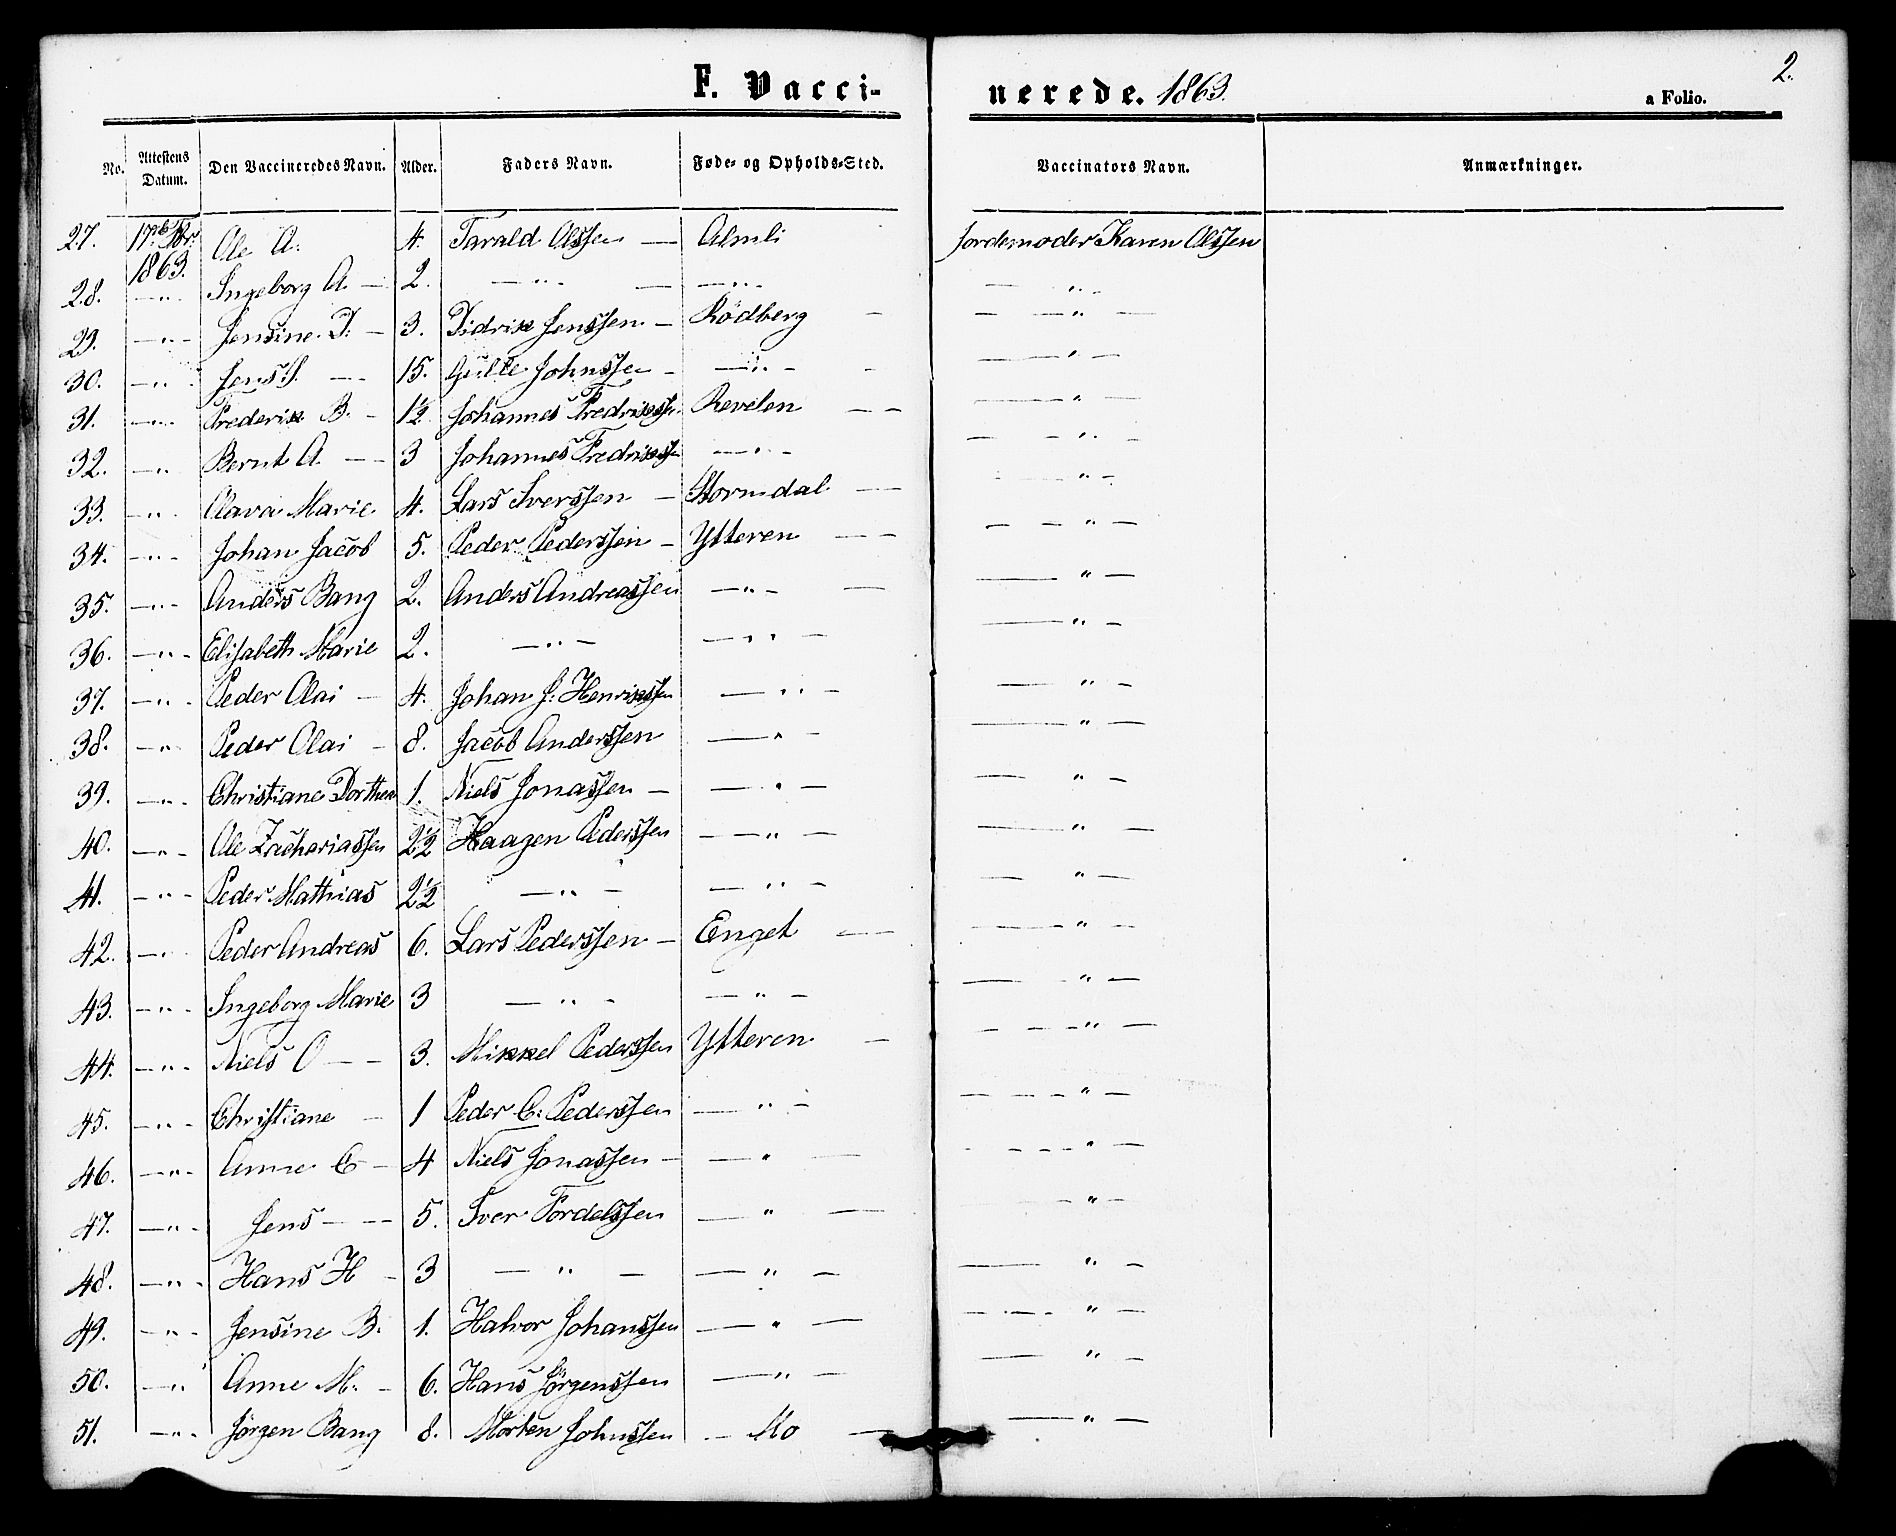 2.
F. Vaccinerede. 1863.
a Folio.
No. Attestens Datum. Den Vaccineredes Navn. Alder. Faders Navn. Føde- og Opholds-Sted. Vaccinators Navn. Anmærkninger.
27. 1863. Ole A. 4. Tarald Olssen — Almli Jordemoder Karen Olssen
28. —"— Ingeborg A. — 2. —"— — —"— —"—
29. —"— Jensine D. — 3. Didrik Jenssen — Rödberg — —"—
30. —"— Jens — 15. Johnssen — —"— —"—
31. —"— Frederik B. — 1½ Johannes Fredrikss. Revelen — —"—
32. —"— Bernt A. — 3 Johannes Fredrikss. —"— —"—
33. —"— Olava Marie. 4. Lars Iverssen — Stormdal — —"—
34. —"— Johan Jacob 5. Peder Pederssen — Ytteren — —"—
35. —"— Anders Bang 2. Anders Andreassen —"— — —"—
36. —"— Elisabeth Marie 2. —"— —"— —"—
37. —"— Peder Olai — 4. Johan J. Henrikssen —"— —"—
38. —"— Peder Olai — 8. Jacob Anderssen —"— —"—
39. —"— Christiane Dorthea 1. Niels Jonassen — —"— —"—
40. —"— Ole Zachariassen 2½ Haagen Pederssen —"— —"—
41. —"— Peder Mathias 2½ —"— —"— —"—
42. —"— Peder Andreas 6. Lars Pederssen — Enget — —"—
43. —"— Ingeborg Marie 3 —"— —"— —"—
44. —"— Niels O — 3. Mikkel Pederssen Ytteren — —"—
45. —"— Christiane — 1 Peder C. Pederssen —"— —"—
46. —"— Anne C — 4 Niels Jonassen — —"— —"—
47. —"— Jens — 5. Iver Tordelssen —"— —"—
48. —"— Hans H — 3 —"— —"— —"—
49. —"— Jensine B. 1. Halvor Johanssen —"— —"—
50. —"— Anne M. — 6. Hans Jörgenssen —"— —"—
51. —"— Jörgen Bang 8. Morten Johnssen — Mo — —"—